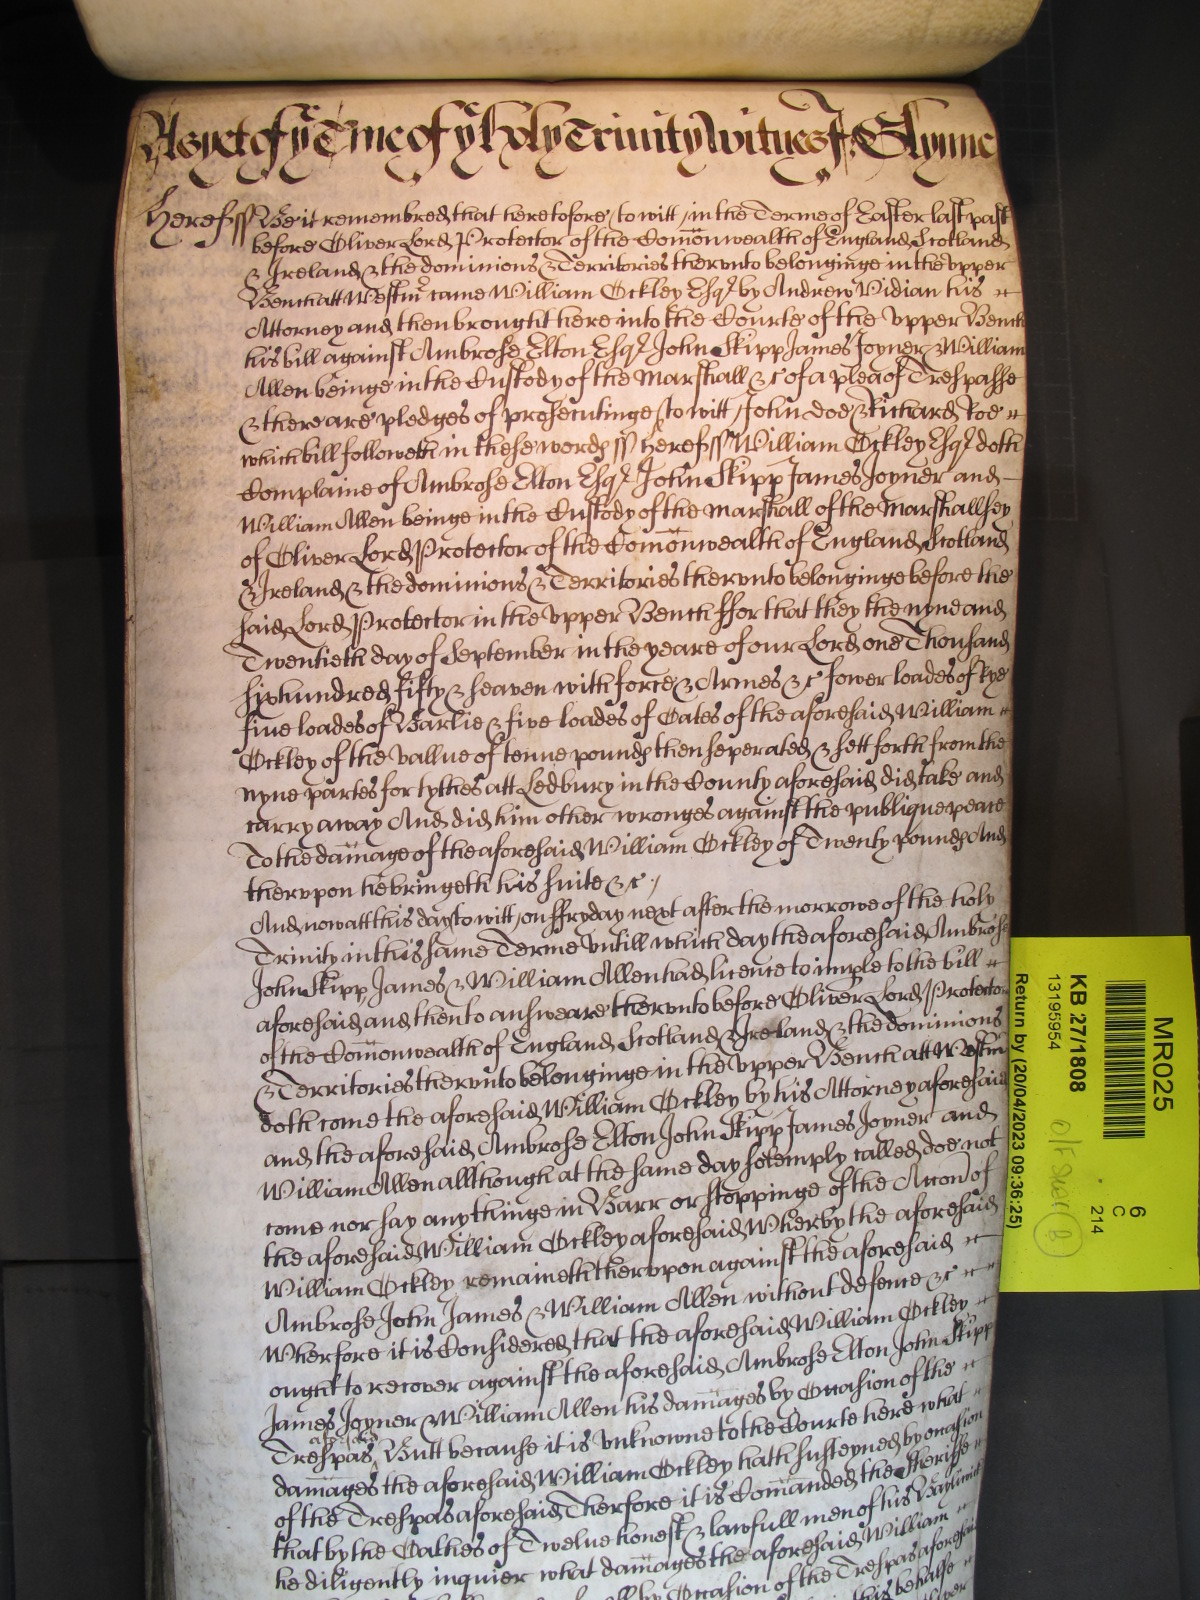 As yet of ye Tme of ye holy Trinity Witnes J: Glynne
Heref ss Be it remembred that heretofore to witt in the Terme of Easter last past
before Oliver Lord Protector of the Comonwealth of England Scotland
& Ireland & the dominions & Territories therunto belonginge in the upper
Bench att Westmr came William Ockley Esqr by Andrew Vidian his
Attorney and then brought here into the Courte of the upper Bench
his bill against Ambrose Elton Esqr John Skipp James Joyner & William
Allen beinge in the Custody of the Marshall &c of a plea of Trespasse
& there are pledges of prosecutinge to witt John doe & Richard Roe
which bill followeth in these words ss Heref ss William Ockley Esqr doth
Complaine of Ambrose Elton Esqr John Skipp James Joyner and
William Allen beinge in the Custody of the Marshall of the Marshallsey
of Oliver Lord Protector of the Comonwealth of England Scotland
& Ireland & the dominions & Territories therunto belonginge before the
said Lord Protector in the upper Bench ffor that they the nyne and
Twentieth day of September in the yeare of our Lord one Thousand
six hundred fifty & seaven with force & Armes &c fower loades of Rye
five loades of Barlie & five loades of Oates of the aforesaid William
Ockley of the vallue of tenne pounds then seperated & sett forth from the
nyne partes for tythes att Ledbury in the County aforesaid did take and
carry away And did him other wronges against the publique peace
To the damage of the aforesaid William Ockley of Twenty pounds And
therupon he bringeth his suite &c
And now att this day to witt on ffryday next after the morrowe of the holy
Trinity in this same Terme untill which day the aforesaid Ambrose
John Skipp James & William Allen had licence to imple to the bill
aforesaid and then to answeare therunto before Oliver Lord Protector
of the Comonwealth of England Scotland & Ireland & the dominions
& Territories therunto belonginge in the upper Bench att Westmr
doth come the aforesaid William Ockley by his Attorney aforesaid
and the aforesaid Ambrose Elton John Skipp James Joyner and
William Allen allthough at the same day solemply called doe not
come nor say any thinge in Barr or stoppinge of the Accon of
the aforesaid William Ockley aforesaid Wherby the aforesaid
William Ockley remaineth therupon against the aforesaid
Ambrose John James & William Allen without defence &c
Wherfore it is Considered that the aforesaid William Ockley
ought to recover against the aforesaid Ambrose Elton John Skipp
James Joyner & William Allen his damages by Occasion of the
Trespas aforesaid Butt because it is unknowne to the Courte here what
damages the aforesaid William Ockley hath susteyned by occasion
of the Trespas aforesaid Therfore it is Comanded the Sheriffe
that by the Oathes of Twelve honest & lawfull men of his Baylwick
he diligently inquier what damages the aforesaid William
by Occasion of the Trespas aforesaid
his behalfe
MR025
6
C
214
KB 27/1808
13195954
Return by (20/04/2023 09:36:25)